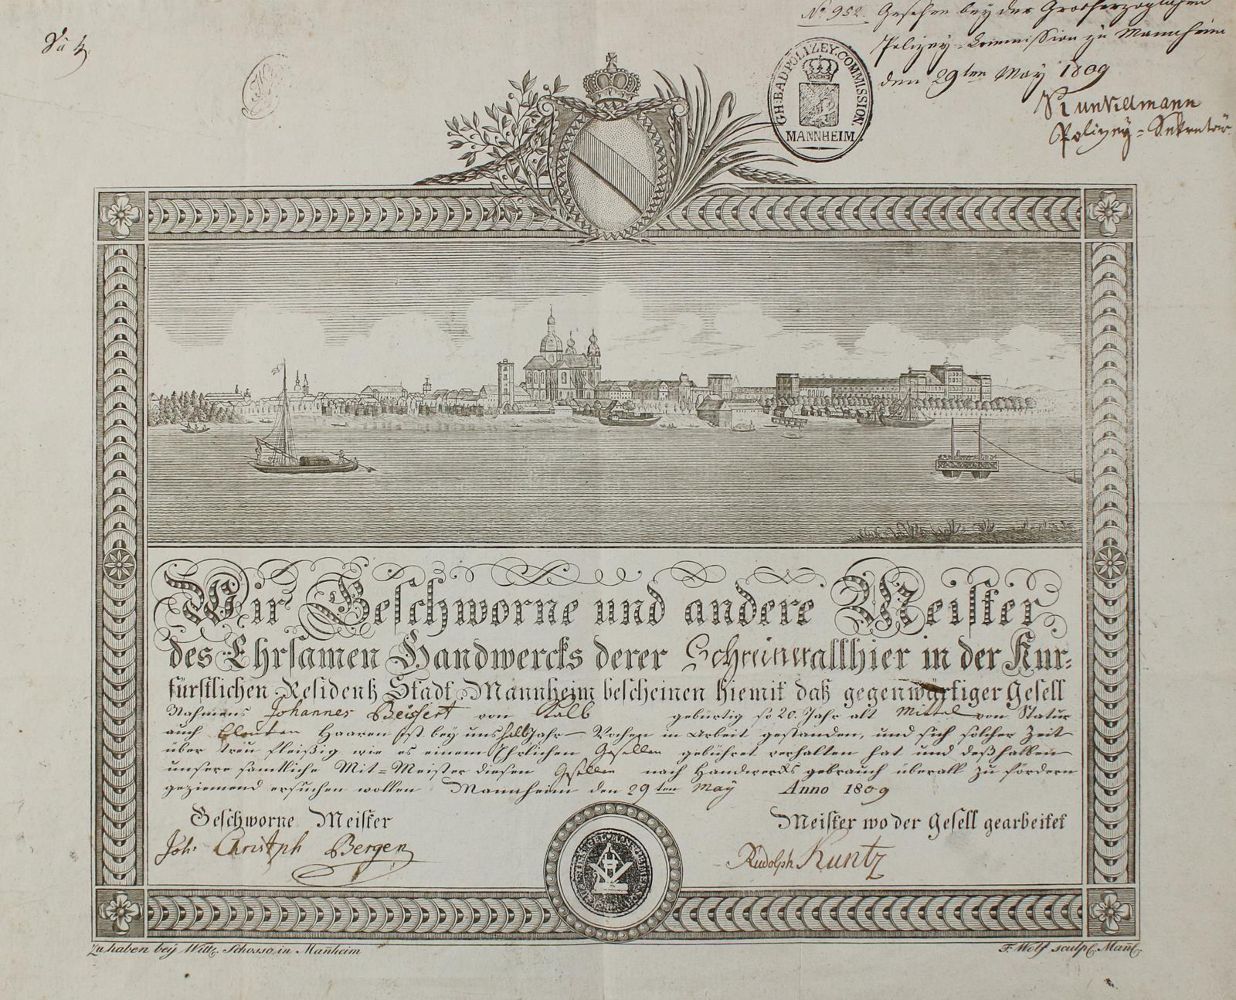 Nº 952. Gesehen bey der Grosherzoglichen
Polizey-Commission zu Mannheim
den 29ten May 1809
Runkelmann
Polizey-Sekretär
GH. BAD. POLIZEY COMMISSION
MANNHEIM
Wir Geschworne und andere Meister
des Ehrsamen Handwercks derer Schreiner allhier in der Kur-
fürstlichen Residentz Stadt Mannheim bescheinen hiemit daß gegenwärtiger Gesell
Nahmens Johannes Beissert von Kalb gebürtig so 20. Jahr alt Mittel von Statur
auch Haaren ist bey uns halb Jahr Wochen in Arbeit gestanden, und sich solcher Zeit
über treu fleißig wie es einem Ehrlichen Gesellen gebühret verhalten hat und deßhalben
unsere sämtliche Mit-Meister diesen Gesellen nach Handwercks gebrauch überall zu fördern
geziemend ersuchen wollen Mannheim den 29ten May Anno 1809
Geschworne Meister
Meister wo der Gesell gearbeitet
Joh. Christoph Bergen
Rudolph Kuntz
zu haben beÿ Witt. Schosso in Man̄heim
F. Wolf sculps. Man̄h.